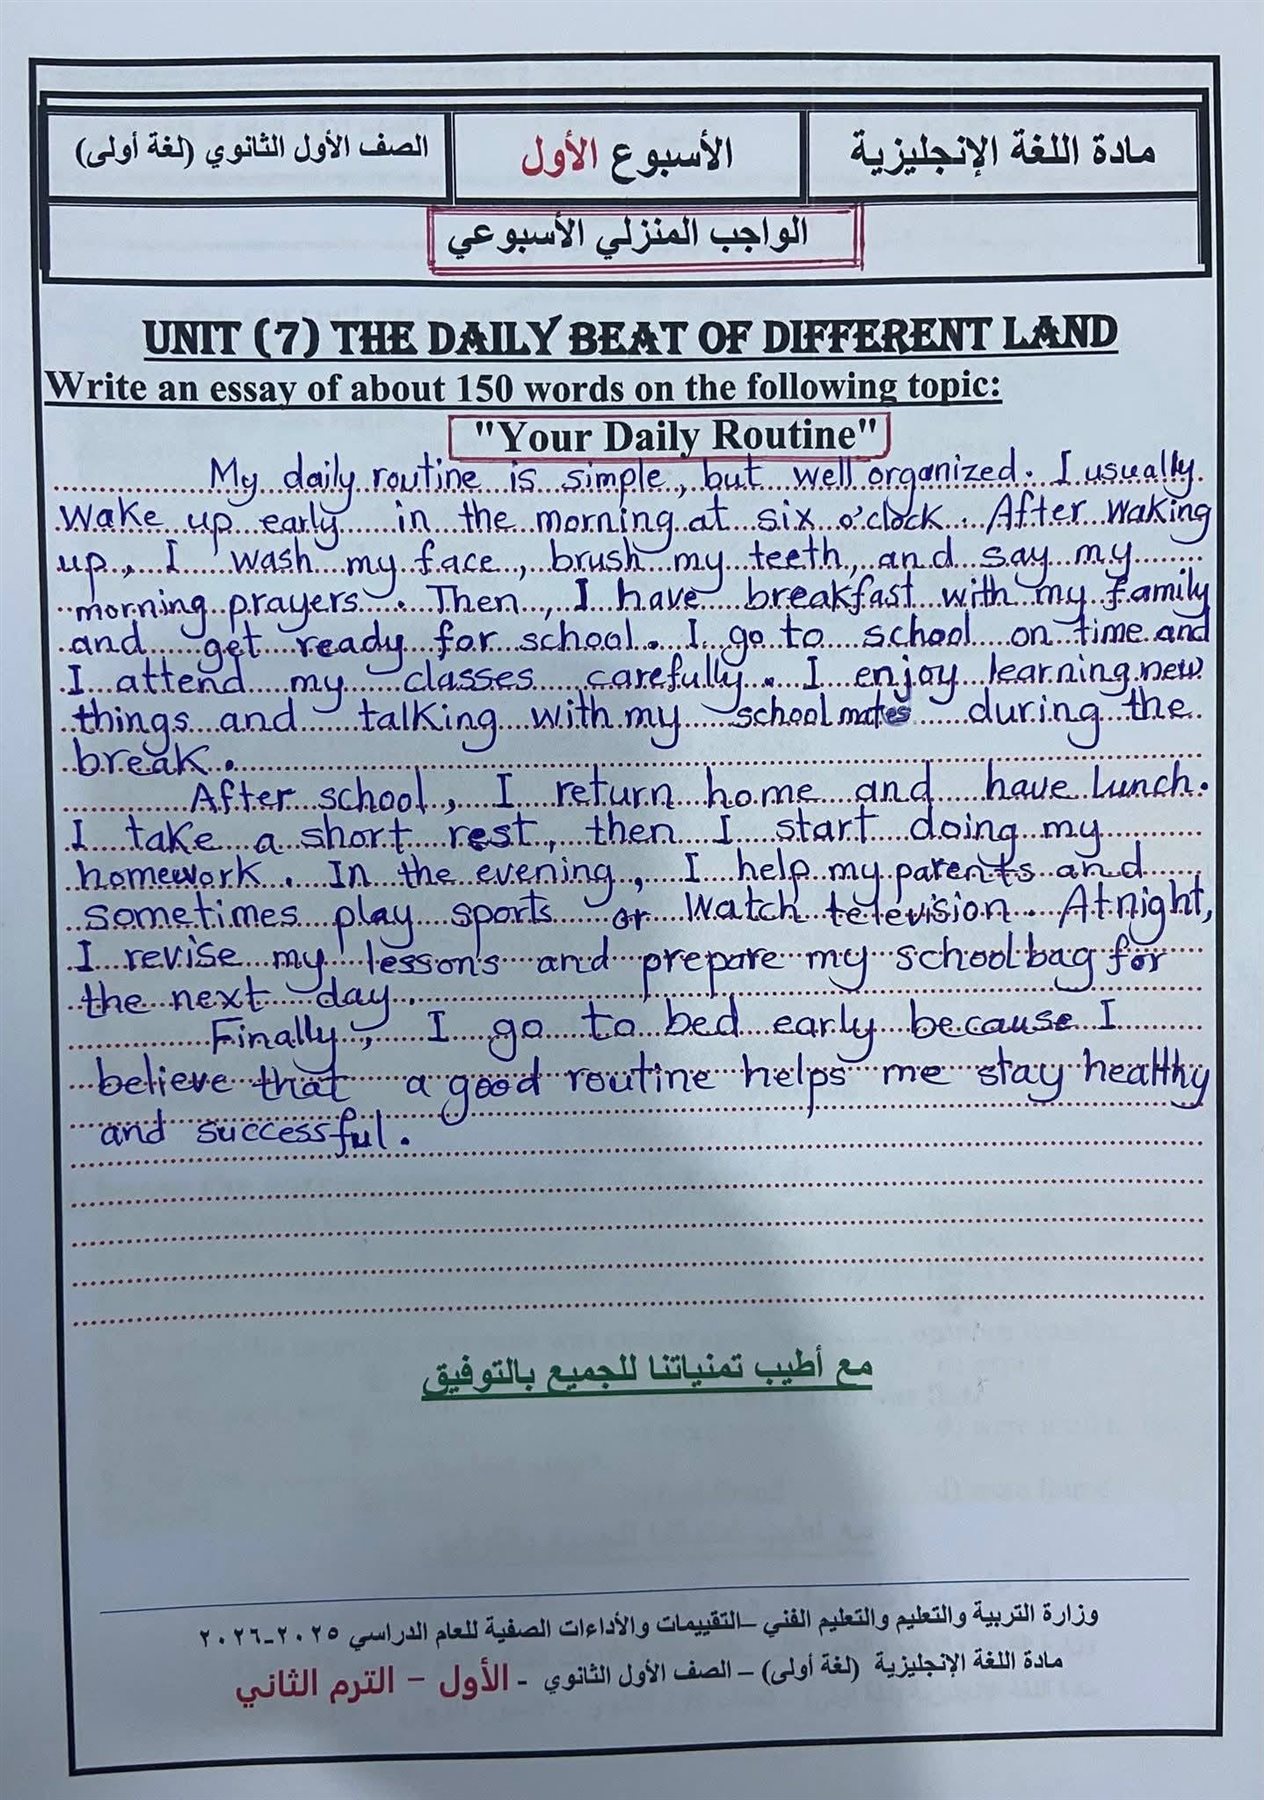 مادة اللغة الإنجليزية
الأسبوع الأول
الصف الأول الثانوي (لغة أولى)
الواجب المنزلي الأسبوعي
UNIT (7) THE DAILY BEAT OF DIFFERENT LAND
Write an essay of about 150 words on the following topic:
"Your Daily Routine"
My daily routine is simple, but well organized. I usually
wake up early in the morning at six o'clock. After waking
up, I wash my face, brush my teeth, and say my
morning prayers. Then, I have breakfast with my family
and get ready for school. I go to school on time and
I attend my classes carefully. I enjoy learning new
things and talking with my schoolmates during the
break.
After school, I return home and have lunch.
I take a short rest, then I start doing my
homework. In the evening, I help my parents and
sometimes play sports or watch television. At night,
I revise my lessons and prepare my school bag for
the next day.
Finally, I go to bed early because I
believe that a good routine helps me stay healthy
and successful.
مع أطيب تمنياتنا للجميع بالتوفيق
وزارة التربية والتعليم والتعليم الفني –التقييمات والأداءات الصفية للعام الدراسي ٢٠٢٥-٢٠٢٦
مادة اللغة الإنجليزية (لغة أولى) – الصف الأول الثانوي - الأول – الترم الثاني